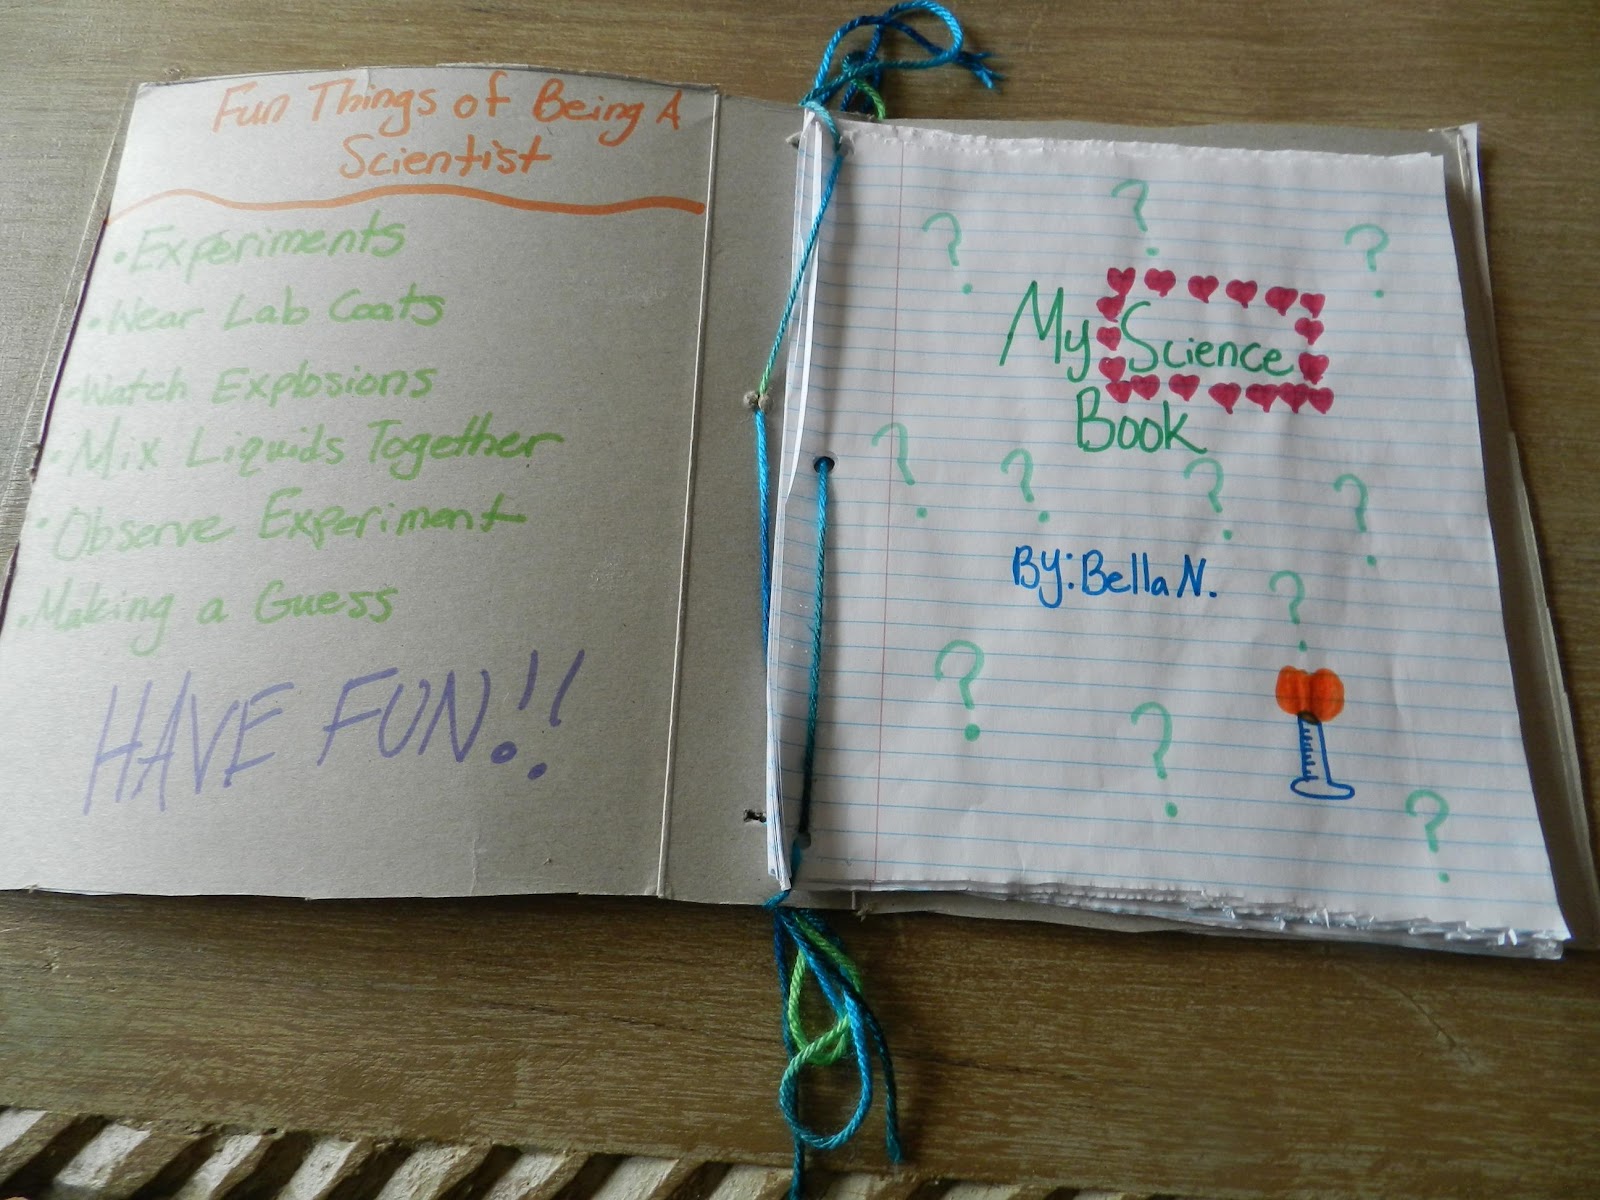 Fun Things of Being A
Scientist
• Experiments
• Wear Lab Coats
• Watch Explosions
• Mix Liquids Together
• Observe Experiment
• Making a Guess
HAVE FUN!!
? ? ?
My Science
Book
? ? ? ?
By: Bella N.
?
? ? ?